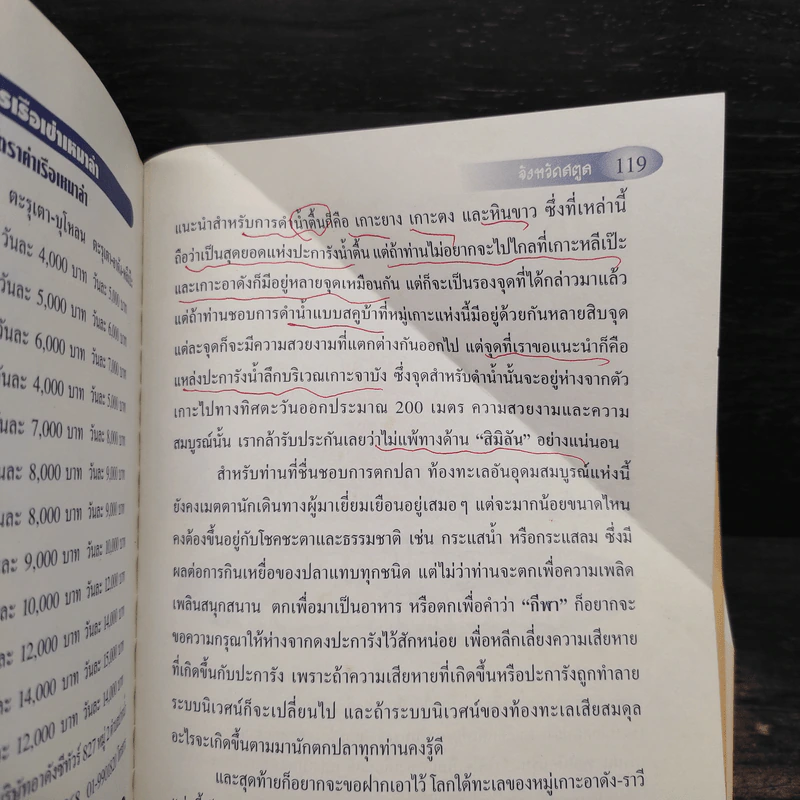 รเรือเช่าเหมาลำ
ตราค่าเรือเหมาลำ
ตะรุเตา-บุโหลน
วันละ 4,000 บาท วันละ 5,000 บาท
วันละ 5,000 บาท วันละ 6,000 บาท
วันละ 6,000 บาท วันละ 7,000 บาท
วันละ 4,000 บาท วันละ 5,000 บาท
ละ 7,000 บาท วันละ 8,000 บาท
ละ 8,000 บาท วันละ 9,000 บาท
ละ 8,000 บาท วันละ 9,000 บาท
ละ 9,000 บาท วันละ 10,000 บาท
ละ 10,000 บาท วันละ 12,000 บาท
ละ 12,000 บาท วันละ 14,000 บาท
ละ 14,000 บาท วันละ 15,000 บาท
ละ 12,000 บาท วันละ 14,000 บาท
ริษัทอาดังซีทัวร์ 827 หมู่ 2
จังหวัดสตูล 119
แนะนำสำหรับการดำน้ำตื้นดีคือ เกาะยาง เกาะตง และหินขาว ซึ่งที่เหล่านี้
ถือว่าเป็นสุดยอดแห่งปะการังน้ำตื้น แต่ถ้าท่านไม่อยากจะไปไกลที่เกาะหลีเป๊ะ
และเกาะอาดังก็มีอยู่หลายจุดเหมือนกัน แต่ก็จะเป็นรองจุดที่ได้กล่าวมาแล้ว
แต่ถ้าท่านชอบการดำน้ำแบบสคูบ้าที่หมู่เกาะแห่งนี้มีอยู่ด้วยกันหลายสิบจุด
แต่ละจุดก็จะมีความสวยงามที่แตกต่างกันออกไป แต่จุดที่เราขอแนะนำก็คือ
แหล่งปะการังน้ำลึกบริเวณเกาะจาบัง ซึ่งจุดสำหรับดำน้ำนั้นจะอยู่ห่างจากตัว
เกาะไปทางทิศตะวันออกประมาณ 200 เมตร ความสวยงามและความ
สมบูรณ์นั้น เรากล้ารับประกันเลยว่าไม่แพ้ทางด้าน “สิมิลัน” อย่างแน่นอน
สำหรับท่านที่ชื่นชอบการตกปลา ท้องทะเลอันอุดมสมบูรณ์แห่งนี้
ยังคงเมตตานักเดินทางผู้มาเยี่ยมเยือนอยู่เสมอๆ แต่จะมากน้อยขนาดไหน
คงต้องขึ้นอยู่กับโชคชะตาและธรรมชาติ เช่น กระแสน้ำ หรือกระแสลม ซึ่งมี
ผลต่อการกินเหยื่อของปลาแทบทุกชนิด แต่ไม่ว่าท่านจะตกเพื่อความเพลิด
เพลินสนุกสนาน ตกเพื่อมาเป็นอาหาร หรือตกเพื่อคำว่า “กีฬา” ก็อยากจะ
ขอความกรุณาให้ห่างจากดงปะการังไว้สักหน่อย เพื่อหลีกเลี่ยงความเสียหาย
ที่เกิดขึ้นกับปะการัง เพราะถ้าความเสียหายที่เกิดขึ้นหรือปะการังถูกทำลาย
ระบบนิเวศน์ก็จะเปลี่ยนไป และถ้าระบบนิเวศน์ของท้องทะเลเสียสมดุล
อะไรจะเกิดขึ้นตามมานักตกปลาทุกท่านคงรู้ดี
และสุดท้ายก็อยากจะขอฝากเอาไว้ โลกใต้ทะเลของหมู่เกาะอาดัง-ราวี